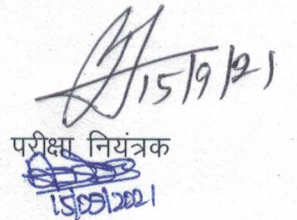 15/9/21
परीक्षा नियंत्रक
15/09/2021